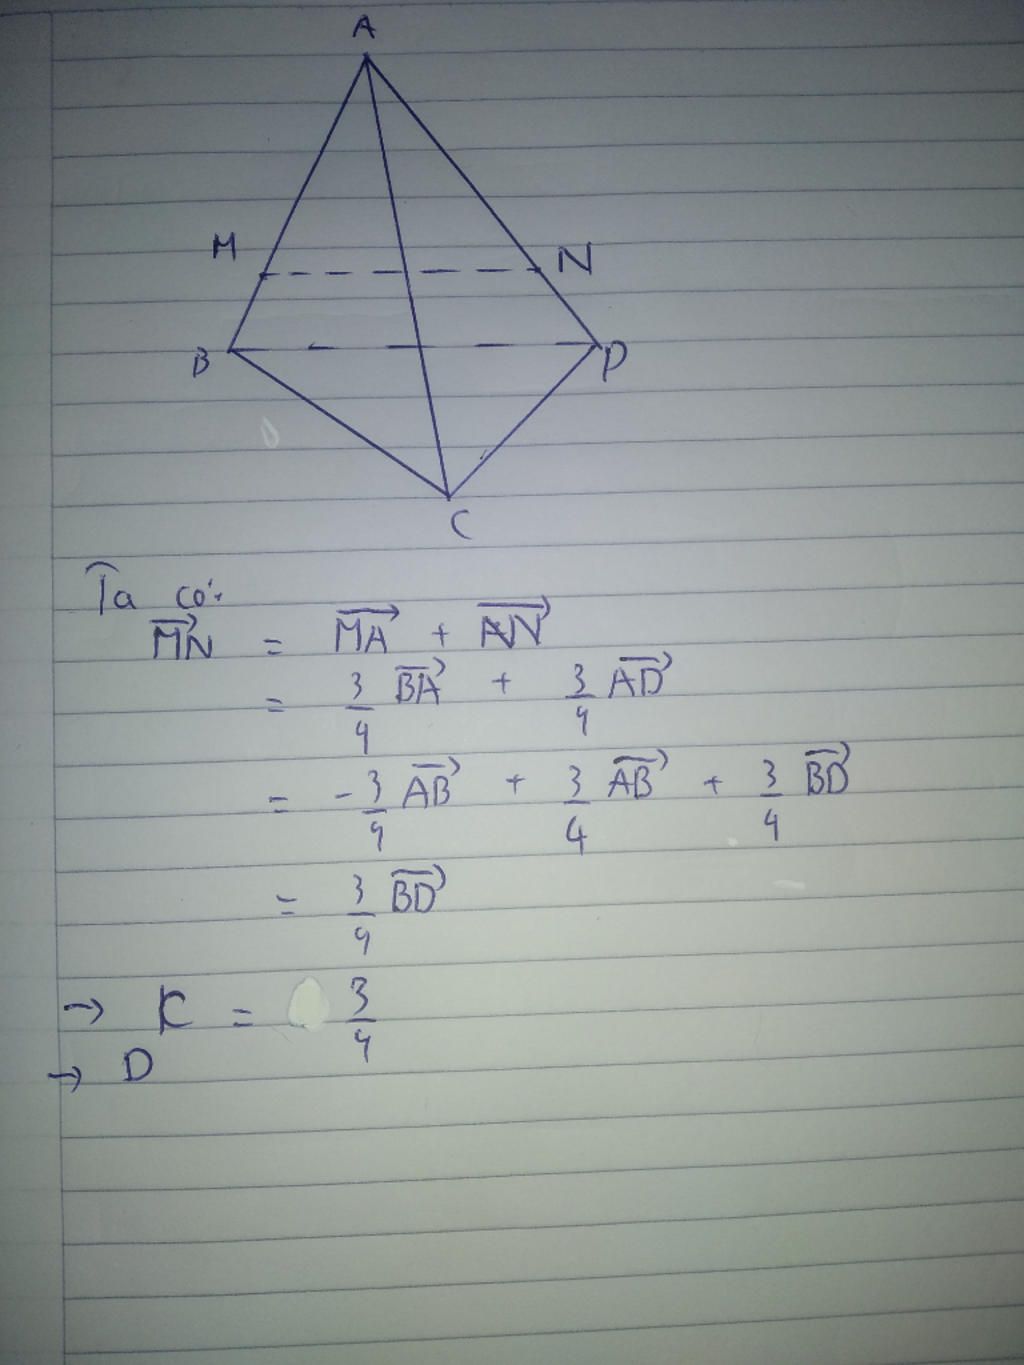 A
M
N
B
D
C
Ta có:
\overrightarrow{MN} = \overrightarrow{MA} + \overrightarrow{AN}
= \frac{3}{4} \overrightarrow{BA} + \frac{3}{4} \overrightarrow{AD}
= -\frac{3}{4} \overrightarrow{AB} + \frac{3}{4} \overrightarrow{AB} + \frac{3}{4} \overrightarrow{BD}
= \frac{3}{4} \overrightarrow{BD}
→ K = \frac{3}{4}
→ D